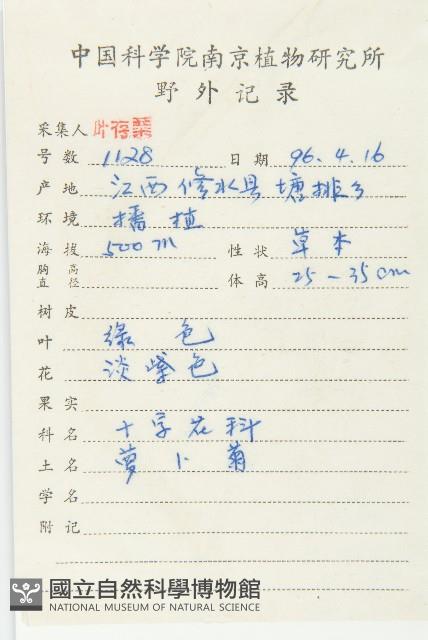 中国科学院南京植物研究所
野外记录
采集人 叶存粟
号数 1128 日期 96.4.16
产地 江西修水县塘排乡
环境 播植
海拔 500m 性状 草本
胸高直径 体高 25-35cm
树皮
叶 绿色
花 淡紫色
果实
科名 十字花科
土名 萝卜菊
学名
附记
國立自然科學博物館
NATIONAL MUSEUM OF NATURAL SCIENCE